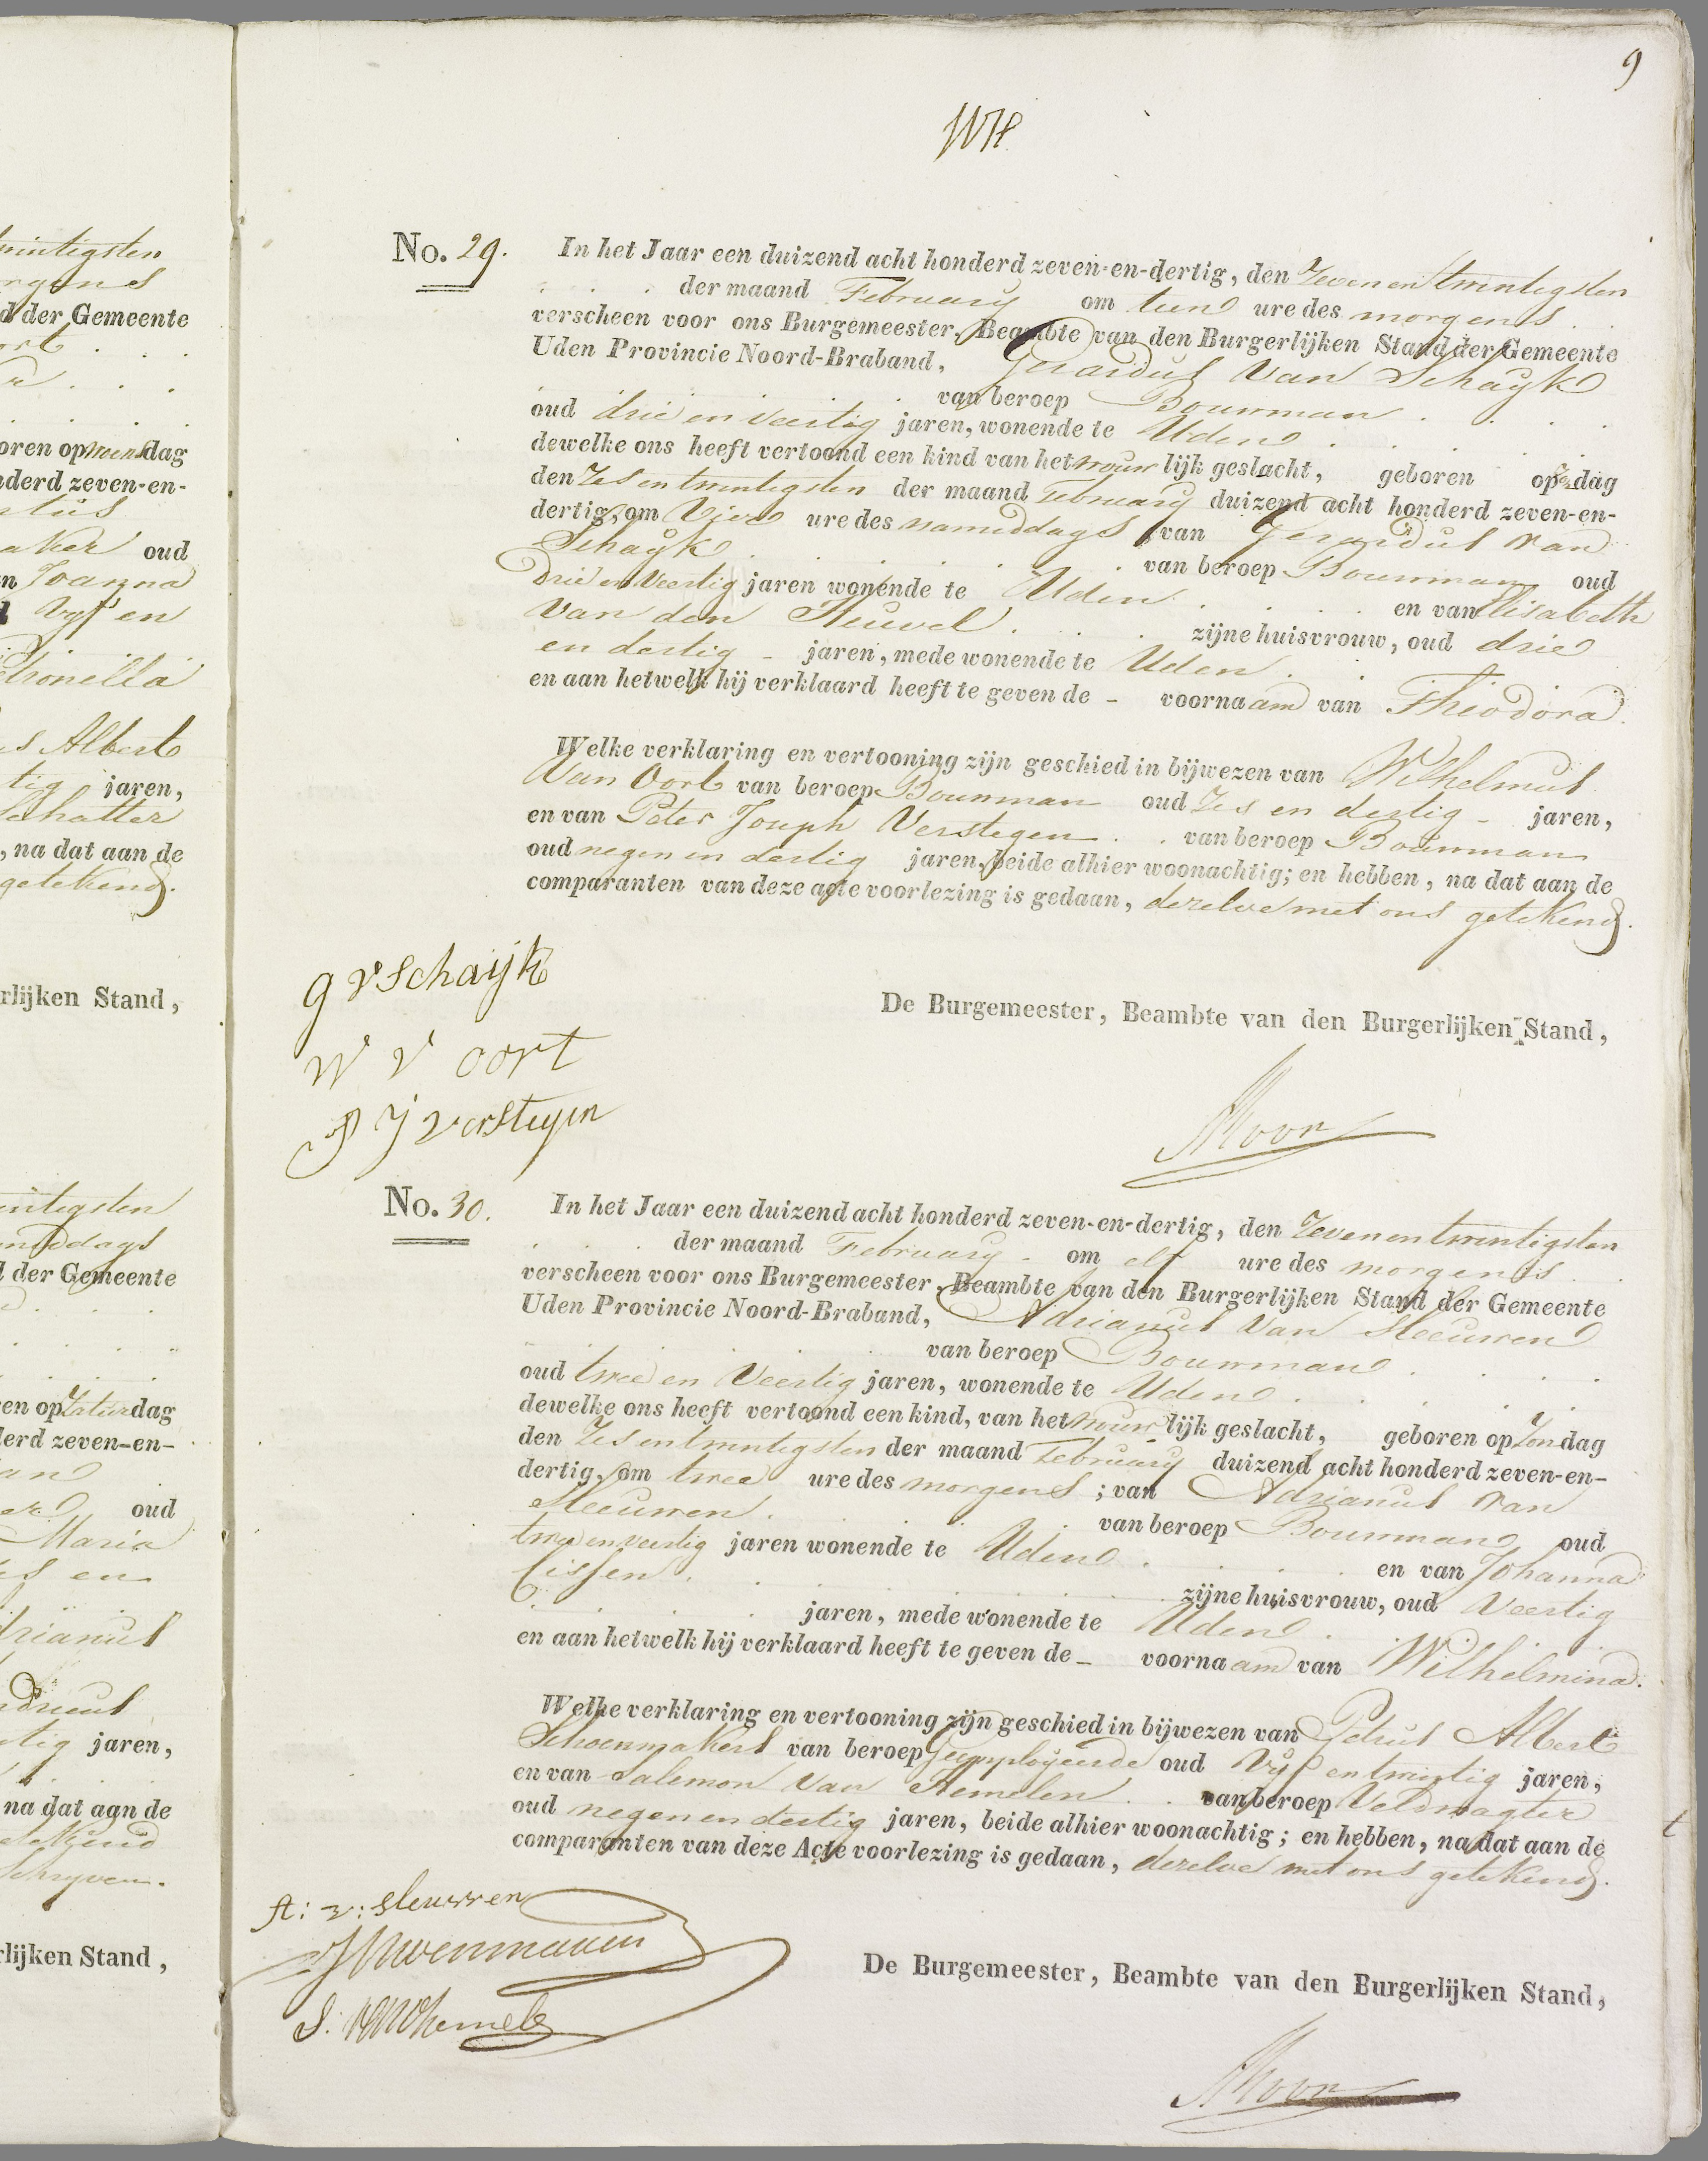 9
No. 29.
In het Jaar een duizend acht honderd zeven-en-dertig, den Zeven en twintigsten
der maand February om tien ure des morgens . .
verscheen voor ons Burgemeester, Beambte van den Burgerlijken Stand der Gemeente
Uden Provincie Noord-Braband, Gerardus Van Schayk
van beroep Bouwman . . . .
oud drie en Veertig jaren, wonende te Uden . . . .
dewelke ons heeft vertoond een kind van het vrouwlijk geslacht, geboren op dag
den Zes en twintigsten der maand February duizend acht honderd zeven-en-
dertig, om Vier ure des namiddags van Gerardus van
Schayk . . . . van beroep Bouwman oud
Drie en Veertig jaren wonende te Uden . . . en van Elisabeth
Van den Heuvel . . . zijne huisvrouw, oud drie
en dertig - jaren, mede wonende te Uden . .
en aan hetwelk hij verklaard heeft te geven de - voornaam van Theodora.
Welke verklaring en vertooning zijn geschied in bijwezen van Wilhelmus
Van Oort van beroep Bouwman oud Zes en dertig - jaren,
en van Peter Joseph Verstegen . . van beroep Bouwman
oud negen en dertig jaren, beide alhier woonachtig; en hebben, na dat aan de
comparanten van deze acte voorlezing is gedaan, dezelve met ons getekend.
g v schaijk
De Burgemeester, Beambte van den Burgerlijken Stand,
w v oort
P J verstegen
No. 30.
In het Jaar een duizend acht honderd zeven-en-dertig, den Zeven en twintigsten
der maand February - om elf ure des morgens . .
verscheen voor ons Burgemeester, Beambte van den Burgerlijken Stand der Gemeente
Uden Provincie Noord-Braband, Adrianus Van Sleeuwen
van beroep Bouwman . . . .
oud twee en Veertig jaren, wonende te Uden . . . .
dewelke ons heeft vertoond een kind, van het vrouwlijk geslacht, geboren op Zondag
den Zes en twintigsten der maand February duizend acht honderd zeven-en-
dertig, om twee ure des morgens ; van Adrianus van
Sleeuwen . . . . van beroep Bouwman oud
twee en veertig jaren wonende te Uden . . . en van Johanna
Cissen . . . . zijne huisvrouw, oud Veertig
. . . jaren, mede wonende te Uden . . .
en aan hetwelk hij verklaard heeft te geven de - voornaam van Wilhelmina.
Welke verklaring en vertooning zijn geschied in bijwezen van Petrus Albert
Schoenmakers van beroep Geemployeerde oud Vyf en twintig jaren,
en van Salemon Van Hemelen . . van beroep Veldwagter
oud negen en dertig jaren, beide alhier woonachtig; en hebben, na dat aan de
comparanten van deze Acte voorlezing is gedaan, dezelve met ons getekend.
A: v: sleuwen
De Burgemeester, Beambte van den Burgerlijken Stand,